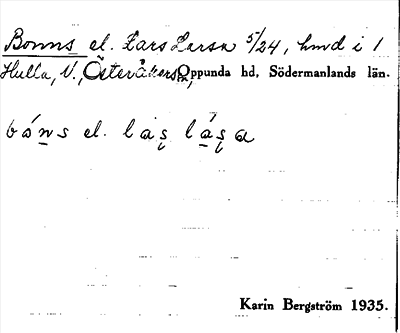 Bonns el. Lars Larsa 5/24, hmd i 1
Hulla, V., Österåkers sn, Oppunda hd, Södermanlands län.
bóns el. las lása
Karin Bergström 1935.